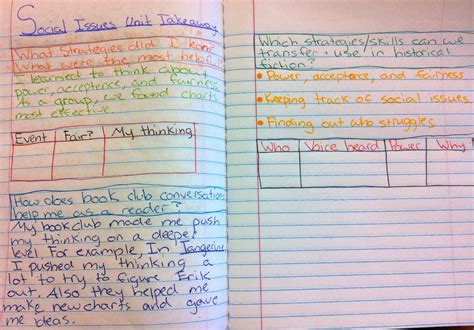 Social Issues Unit Takeaway
What Strategies did I learn?
What were the most helpful?
I learned to think about
power, acceptance, and fairness
As a group, we found charts
most effective.
Event Fair? My thinking
How does book club conversations
help me as a reader?
My book club made me push
my thinking on a deeper
level. For example, In Tangerine
I pushed my thinking a
lot to try to figure Erik
out. Also they helped me
make new charts and gave
me ideas.
Which strategies/skills can we
transfer + use in historical
fiction?
• Power, acceptance, and fairness
• Keeping track of social issues
• Finding out who struggles
Who Voice heard Power Why